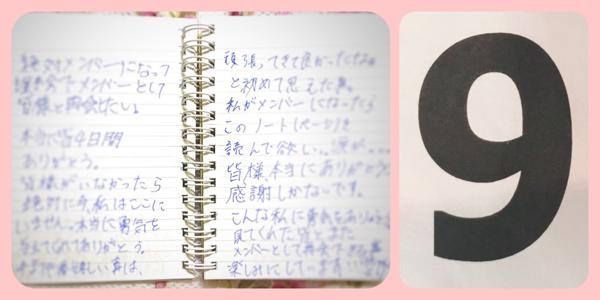 絶対メンバーになって
メンバーとして
皆様と再会したい。
本当に皆4日間
ありがとう。
皆様がいなかったら
絶対に今、私はここに
いません。本当に勇気を
与えてくれてありがとう。
嬉しい事は、
頑張ってきて良かったなぁ
と初めて思えた事。
私がメンバーになったら
このノート(ページ)を
読んで欲しい。涙が....
皆様本当にありがとう
感謝しかないです。
こんな私に勇気をありがとう
見てくれた皆とまた
メンバーとして再会できる事
楽しみにしています
9